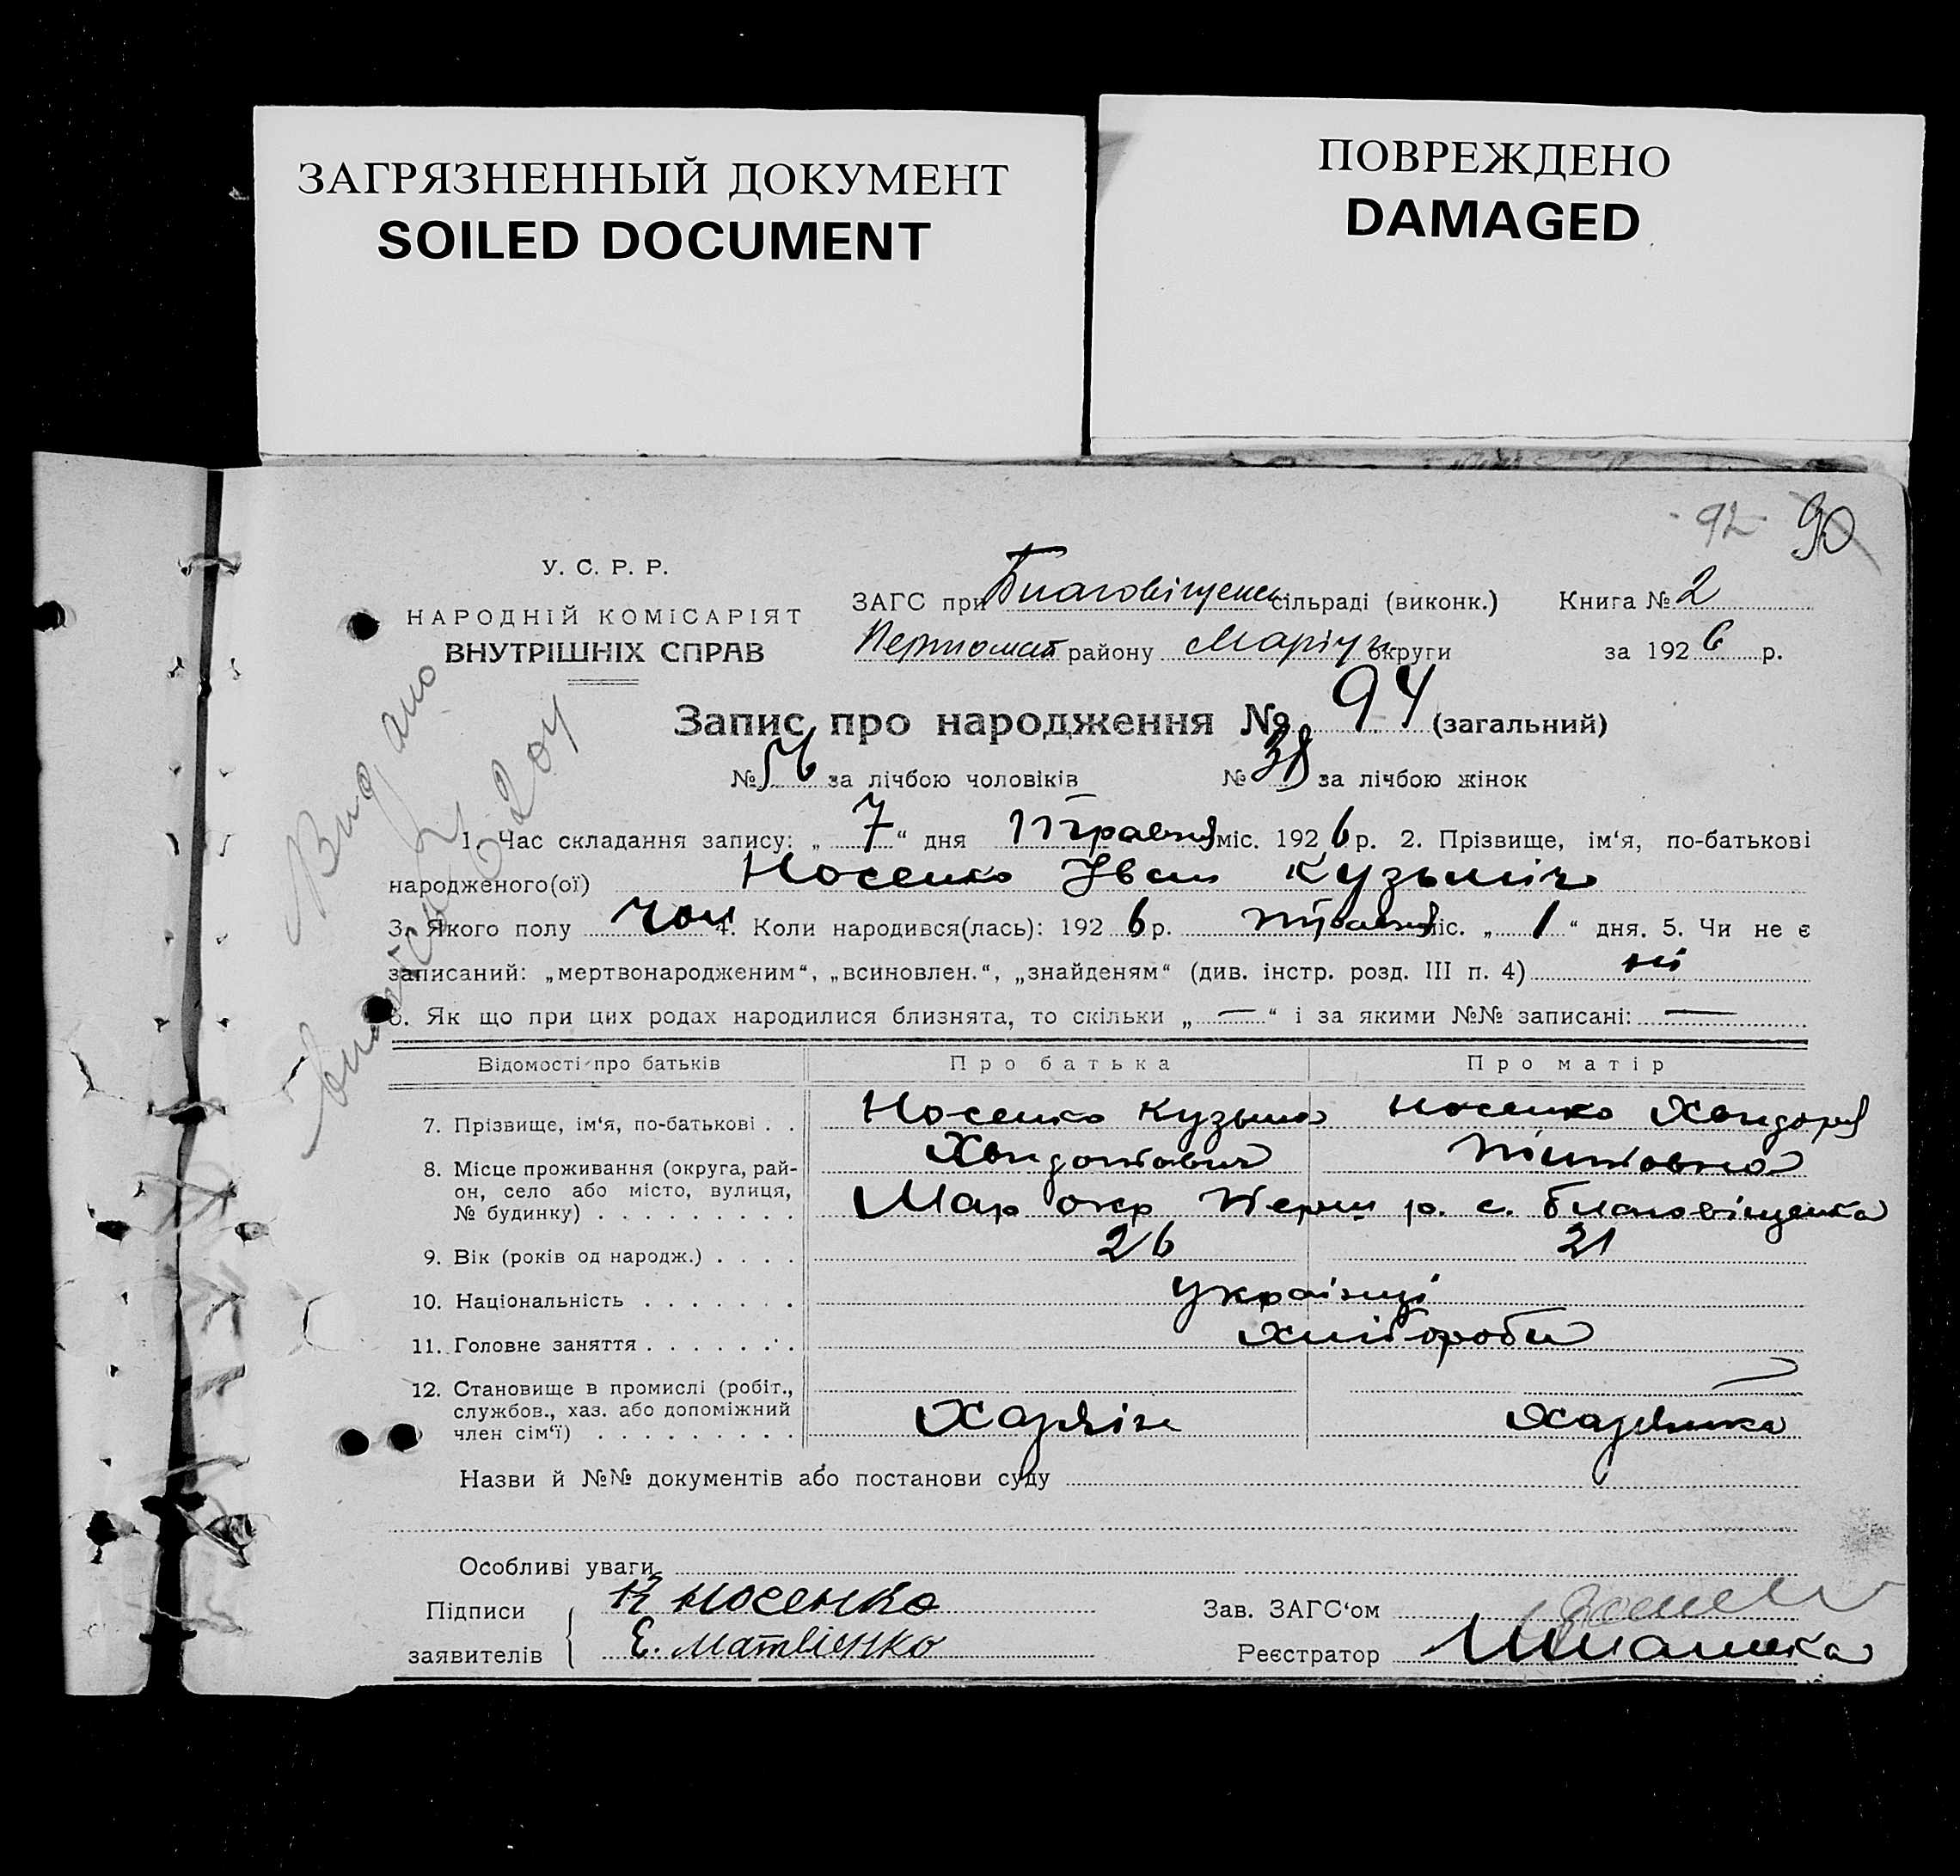 ЗАГРЯЗНЕННЫЙ ДОКУМЕНТ
SOILED DOCUMENT
ПОВРЕЖДЕНО
DAMAGED
92 90
У. С. Р. Р.
НАРОДНІЙ КОМІСАРІЯТ
ВНУТРІШНІХ СПРАВ
ЗАГС при Благовіщенс сільраді (виконк.) Книга № 2
району Маріуп округи за 1926 р.
Запис про народження № 94 (загальний)
№ 56 за лічбою чоловіків № 38 за лічбою жінок
1. Час складання запису: „ 7 “ дня травня міс. 1926 р. 2. Прізвище, ім‘я, по-батькові
народженого(ої) Носенко Іван Кузьміч
3. Якого полу чол 4. Коли народився(лась): 1926 р. травня міс. „ 1 “ дня. 5. Чи не є
записаний: „мертвонародженим“, „всиновлен.“, „знайденям“ (див. інстр. розд. III п. 4) ні
6. Як що при цих родах народилися близнята, то скільки „ — “ і за якими №№ записані: —
Відомості про батьків Про батька Про матір
7. Прізвище, ім‘я, по-батькові . . Носенко Кузьма Носенко
8. Місце проживання (округа, рай-
он, село або місто, вулиця,
№ будинку) . . . . . . . . . Мар окр Перш р. с. Благовіщенка
9. Вік (років од народж.) . . . . 26 21
10. Національність . . . . . . . українці
11. Головне заняття . . . . . . . хлібороби
12. Становище в промислі (робіт.,
службов., хаз. або допоміжний
член сім‘ї) . . . . . . . . . Хазяїн хазяйка
Назви й №№ документів або постанови суду
Особливі уваги
Підписи К Носенко Зав. ЗАГС‘ом
заявителів Е. Матвієнко Реєстратор
Видано